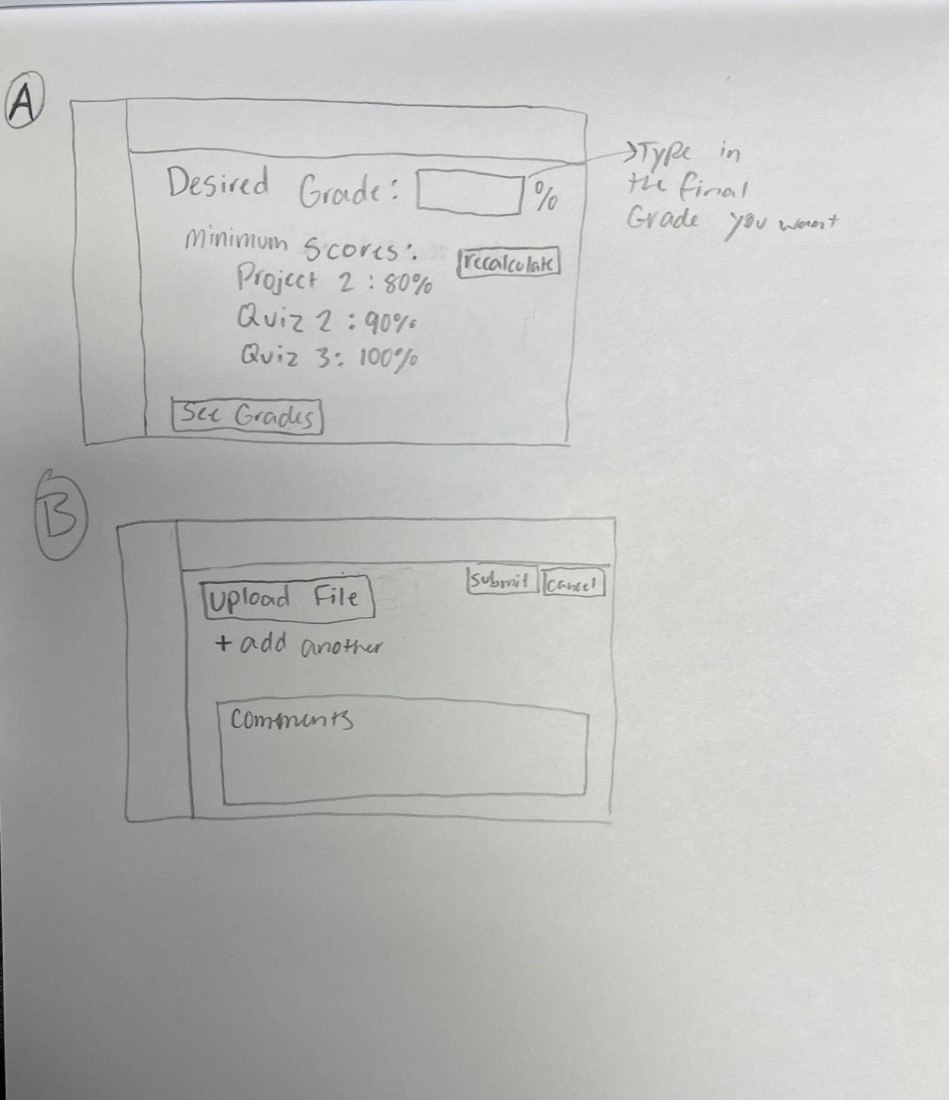 A
Desired Grade: %
Type in
the final
Grade you want
Minimum Scores:
recalculate
Project 2 : 80%
Quiz 2 : 90%
Quiz 3: 100%
See Grades
B
Upload File
Submit
Cancel
+ add another
Comments